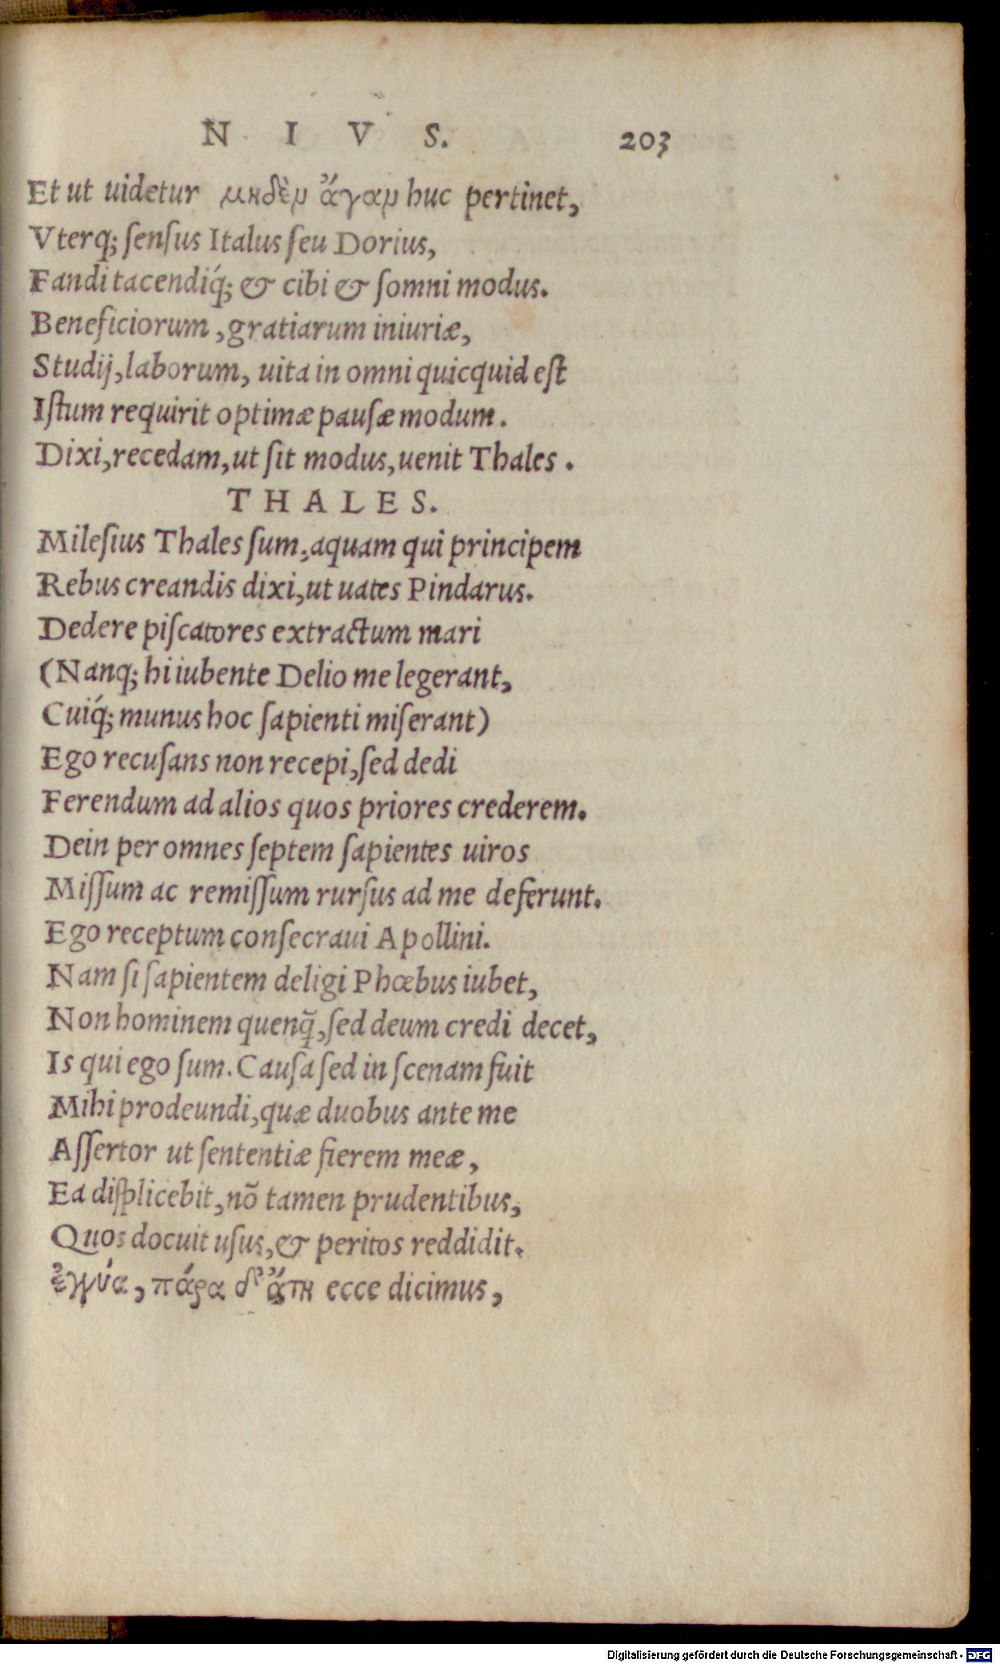 N I V S. 203
Et ut uidetur μηδὲν ἄγαν huc pertinet,
Vterq; sensus Italus seu Dorius,
Fandi tacendiq́; & cibi & somni modus.
Beneficiorum, gratiarum iniuriæ,
Studij, laborum, uita in omni quicquid est
Istum requirit optimæ pausæ modum.
Dixi, recedam, ut sit modus, uenit Thales.
THALES.
Milesius Thales sum, aquam qui principem
Rebus creandis dixi, ut uates Pindarus.
Dedere piscatores extractum mari
(Nanq; hi iubente Delio me legerant,
Cuiq́; munus hoc sapienti miserant)
Ego recusans non recepi, sed dedi
Ferendum ad alios quos priores crederem.
Dein per omnes septem sapientes uiros
Missum ac remissum rursus ad me deferunt.
Ego receptum consecraui Apollini.
Nam si sapientem deligi Phœbus iubet,
Non hominem quenq̃, sed deum credi decet,
Is qui ego sum. Causa sed in scenam fuit
Mihi prodeundi, quæ duobus ante me
Assertor ut sententiæ fierem meæ,
Ea displicebit, nõ tamen prudentibus,
Quos docuit usus, & peritos reddidit.
ἐγγύα, πάρα δ' ἄτη ecce dicimus,
Digitalisierung gefördert durch die Deutsche Forschungsgemeinschaft - DFG